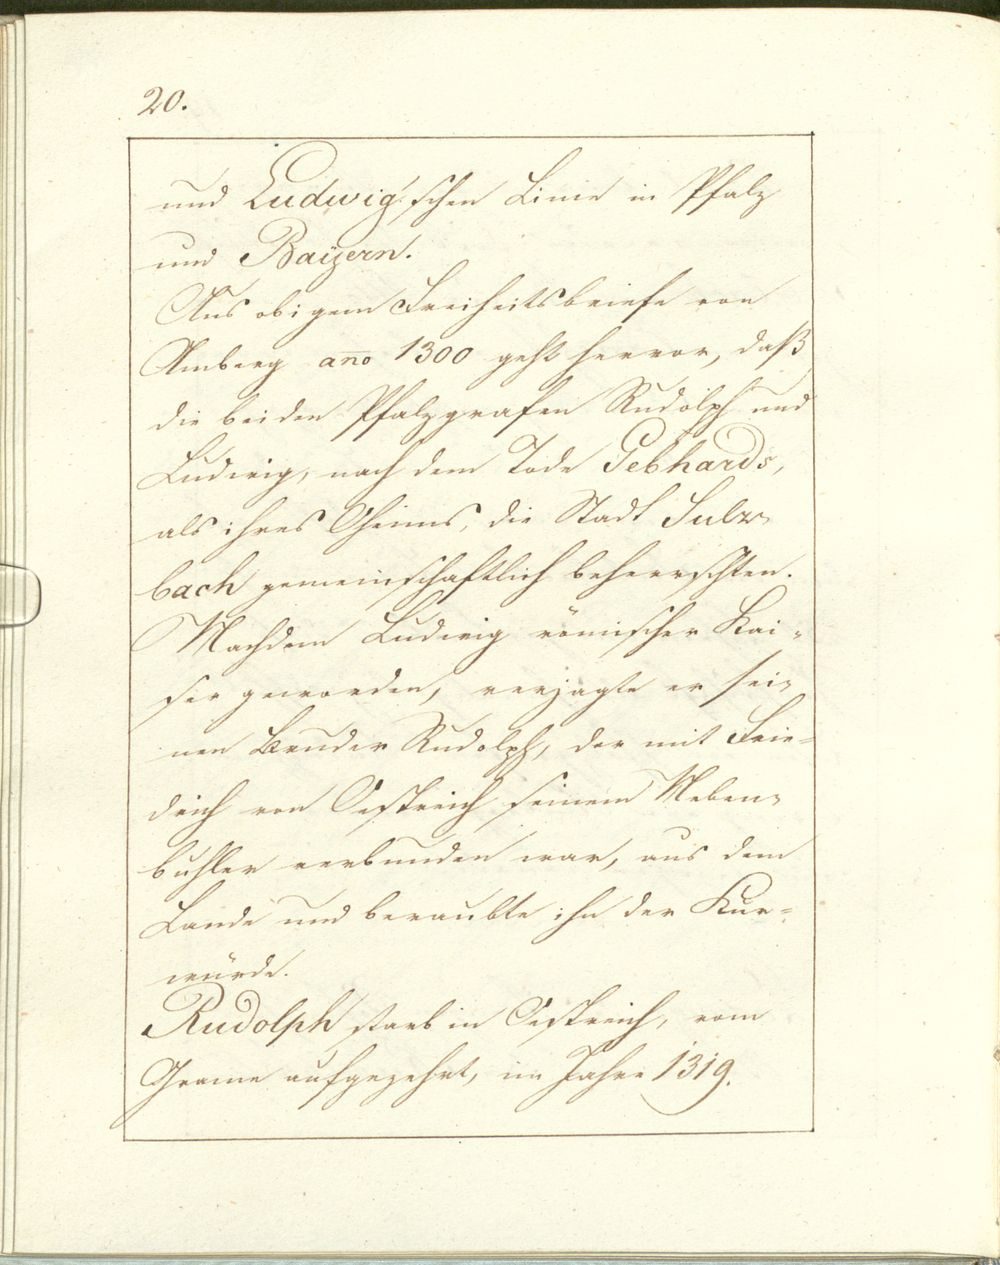 20.
und Ludwig'schen Linie in Pfalz
und Baÿern.
Aus obigem Freiheitsbriefe von
Amberg ano 1300 geht hervor, daß
die beiden Pfalzgrafen Rudolph und
Ludwig, nach dem Tode Gebhards,
als ihres Oheims, die Stadt Sulz-
bach gemeinschaftlich beherrschten.
Nachdem Ludwig römischer Kai-
ser geworden, verjagte er sei-
nen Bruder Rudolph, der mit Frie-
drich von Oestreich seinem Neben-
buhler verbunden war, aus dem
Lande und beraubte ihn der Kur-
würde.
Rudolph starb in Oestreich, vom
Grame aufgezehrt, im Jahre 1319.